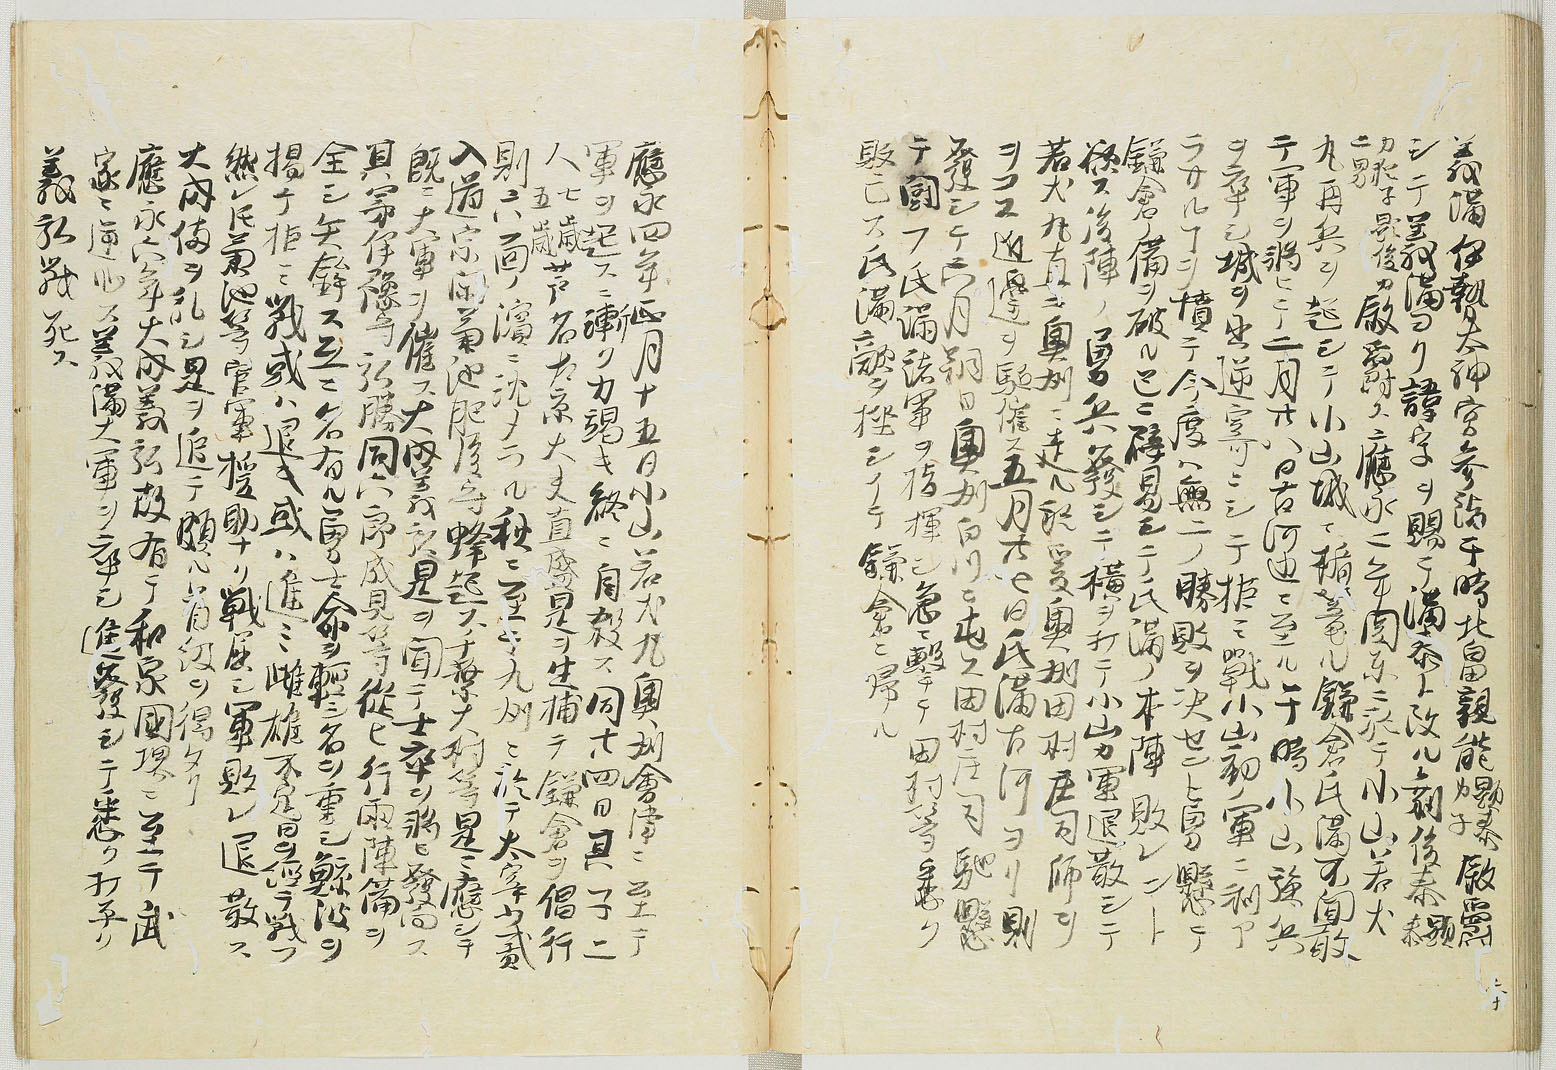 義満伊勢大神宮参詣于時北畠親能顕泰カ子叙爵
シテ義満ヨリ諱字ヲ賜テ満泰ト改ル剃後泰顕泰
カ猶子顕俊カ二男叙爵ス應永二年関東ニ於テ小山若犬
丸再兵ヲ起シテ小山城ニ楯篭ル鎌倉氏満不聞敢
テ軍ヲ将ヒテ二月廿八日古河辺ニ至ル于時小山強兵
ヲ率シ城ヲ出逆寄ニシテ拒ミ戦小山初ノ軍ニ利ア
ラサルヿヲ憤テ今度ハ無二ノ勝敗ヲ決セント勇懸テ
鎌倉ノ備ヲ破ル已ニ辟易シテ氏満ノ本陣敗レント
欲ス後陣ノ勇兵發シテ横ヲ打テ小山カ軍退散シテ
若犬丸直ニ奥州ニ走ル於爰奥州田村庄司師ヲ
ヲコス近邊ヲ駈催ス五月廿七日氏満古河ヨリ則
發シテ六月朔日奥州白川ニ屯ス田村庄司馳懸
テ闘フ氏満諸軍ヲ指揮シ急ニ撃テ田村等悉ク
敗亡ス氏満歡ヲ極シテ鎌倉ニ帰ル
應永四年正月十五日小山若犬丸奥州會津ニ至テ
軍ヲ起スニ漸ク力竭キ終ニ自殺ス同廿四日其子二
人七歳五歳芦名左京大夫直盛是ヲ生捕テ鎌倉ヲ倡行
則六面ノ濱ニ沈タラル秋ニ至テ九州ニ於テ太宰少貳
入道宗閑菊池肥後守蜂起ス千葉大村等是ニ應シテ
既ニ大軍ヲ催ス大内義弘是ヲ聞テ士卒ヲ將ヒ發向ス
其弟伊豫守弘勝同六郎盛見等從ヒ行両陣備ヲ
全シ矢鋒ス互ニ名有ル勇士命ヲ輕シ名ヲ重シ鯨波ヲ
揚テ拒ミ戦或ハ退キ或ハ進ミ雌雄不定日ヲ經テ戦フ
然レ氏菊池等官軍援助ナリ戦屈シ軍敗レ退散ス
大内備ヲ乱シ是ヲ追テ頗ル首級ヲ得タリ
應永六年大内義弘故有テ和泉國堺ニ至テ武
家ニ逆心ス義満大軍ヲ卒シ進發シテ悉ク打平ク
義弘戦死ス
二十